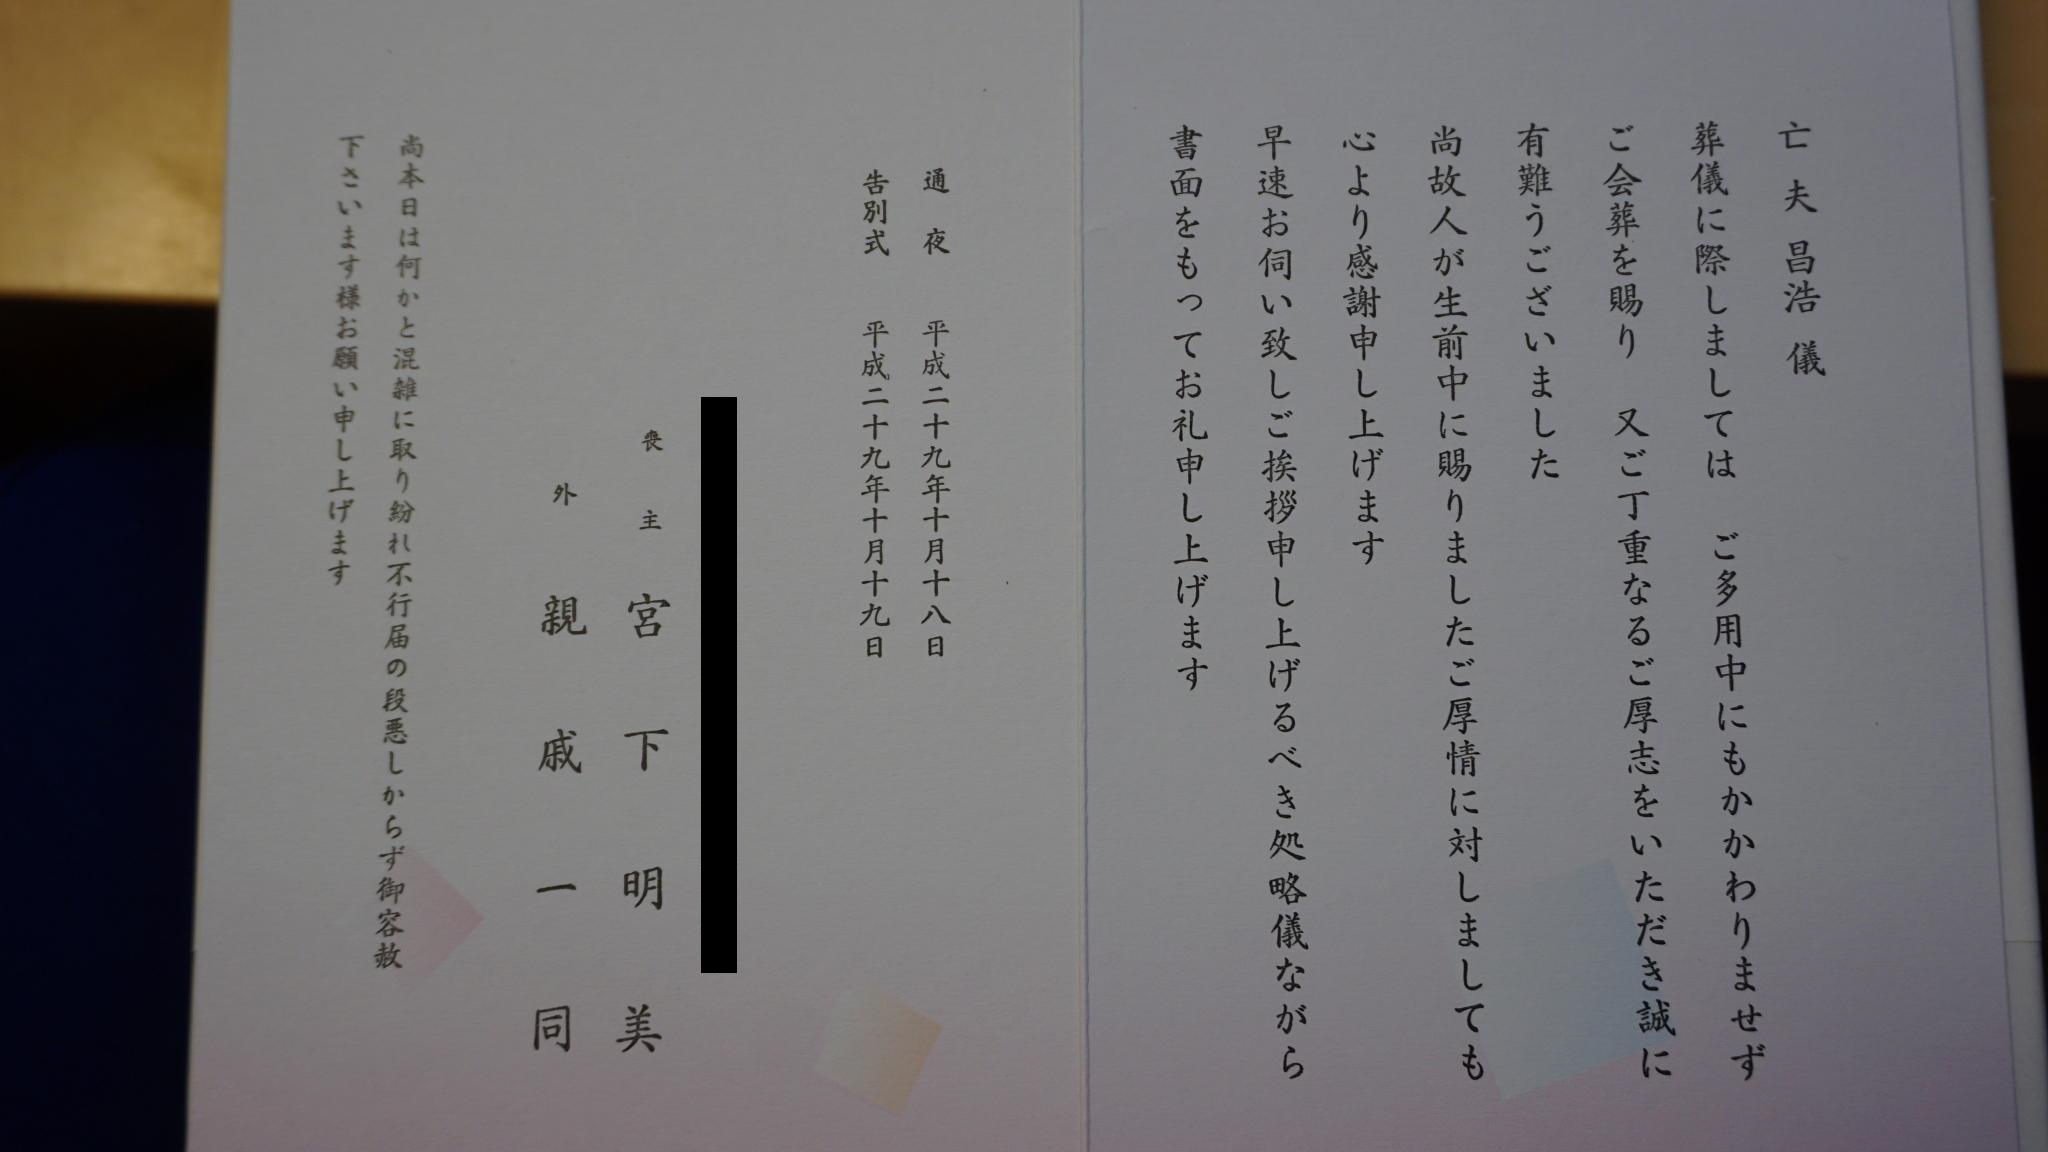 亡夫 昌浩 儀
葬儀に際しましては　ご多用中にもかかわりませず
ご会葬を賜り　又ご丁重なるご厚志をいただき誠に
有難うございました
尚故人が生前中に賜りましたご厚情に対しましても
心より感謝申し上げます
早速お伺い致しご挨拶申し上げるべき処略儀ながら
書面をもってお礼申し上げます
通夜　平成二十九年十月十八日
告別式　平成二十九年十月十九日
喪主　宮下明美
外　親戚一同
尚本日は何かと混雑に取り紛れ不行届の段悪しからず御容赦
下さいます様お願い申し上げます